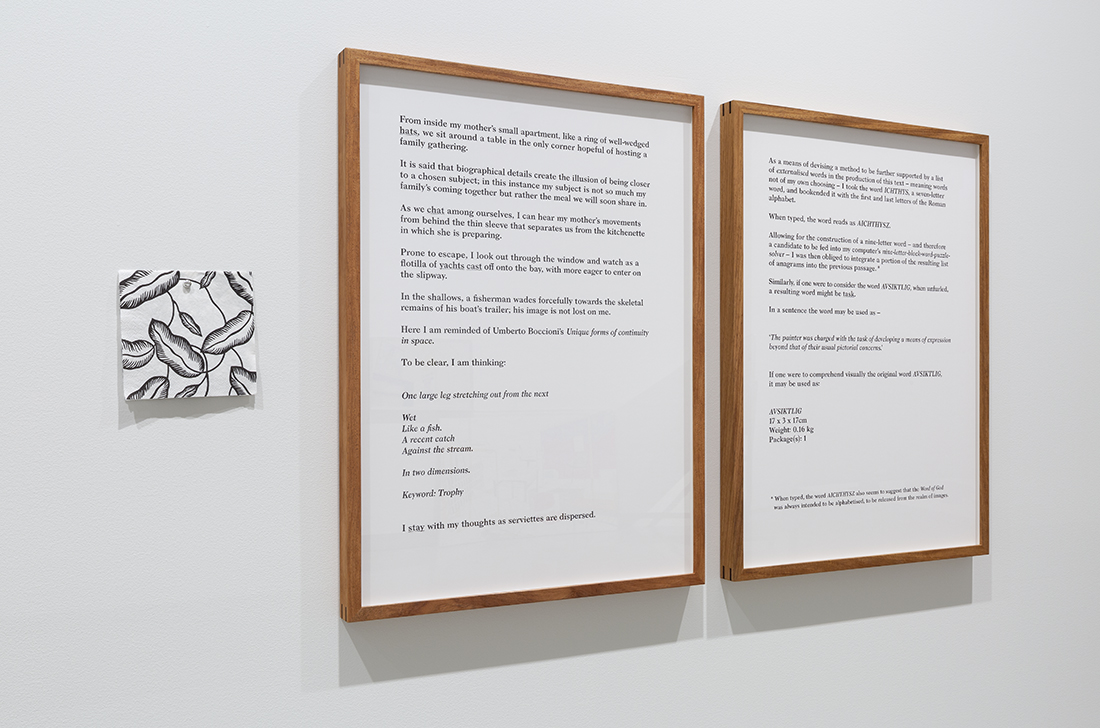 From inside my mother's small apartment, like a ring of well-wedged
hats, we sit around a table in the only corner hopeful of hosting a
family gathering.
It is said that biographical details create the illusion of being closer
to a chosen subject; in this instance my subject is not so much my
family's coming together but rather the meal we will soon share in.
As we chat among ourselves, I can hear my mother's movements
from behind the thin sleeve that separates us from the kitchenette
in which she is preparing.
Prone to escape, I look out through the window and watch as a
flotilla of yachts cast off onto the bay, with more eager to enter on
the slipway.
In the shallows, a fisherman wades forcefully towards the skeletal
remains of his boat's trailer; his image is not lost on me.
Here I am reminded of Umberto Boccioni's Unique forms of continuity
in space.
To be clear, I am thinking:
One large leg stretching out from the next
Wet
Like a fish.
A recent catch
Against the stream.
In two dimensions.
Keyword: Trophy
I stay with my thoughts as serviettes are dispersed.
As a means of devising a method to be further supported by a list
of externalised words in the production of this text – meaning words
not of my own choosing – I took the word ICHTHYS, a seven-letter
word, and bookended it with the first and last letters of the Roman
alphabet.
When typed, the word reads as AICHTHYSZ.
Allowing for the construction of a nine-letter word – and therefore
a candidate to be fed into my computer's nine-letter-block-word-puzzle-
solver – I was then obliged to integrate a portion of the resulting list
of anagrams into the previous passage.*
Similarly, if one were to consider the word AVSIKTLIG, when unfurled,
a resulting word might be task.
In a sentence the word may be used as –
'The painter was charged with the task of developing a means of expression
beyond that of their usual pictorial concerns.'
If one were to comprehend visually the original word AVSIKTLIG,
it may be used as:
AVSIKTLIG
17 x 3 x 17cm
Weight: 0.16 kg
Package(s): 1
* When typed, the word AICHTHYSZ also seems to suggest that the Word of God
was always intended to be alphabetised, to be released from the realm of images.